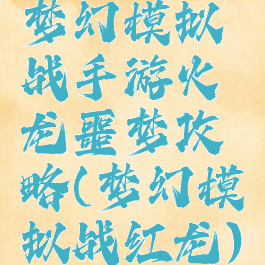 梦幻模拟
战手游火
龙噩梦攻
略(梦幻模
拟战红龙)